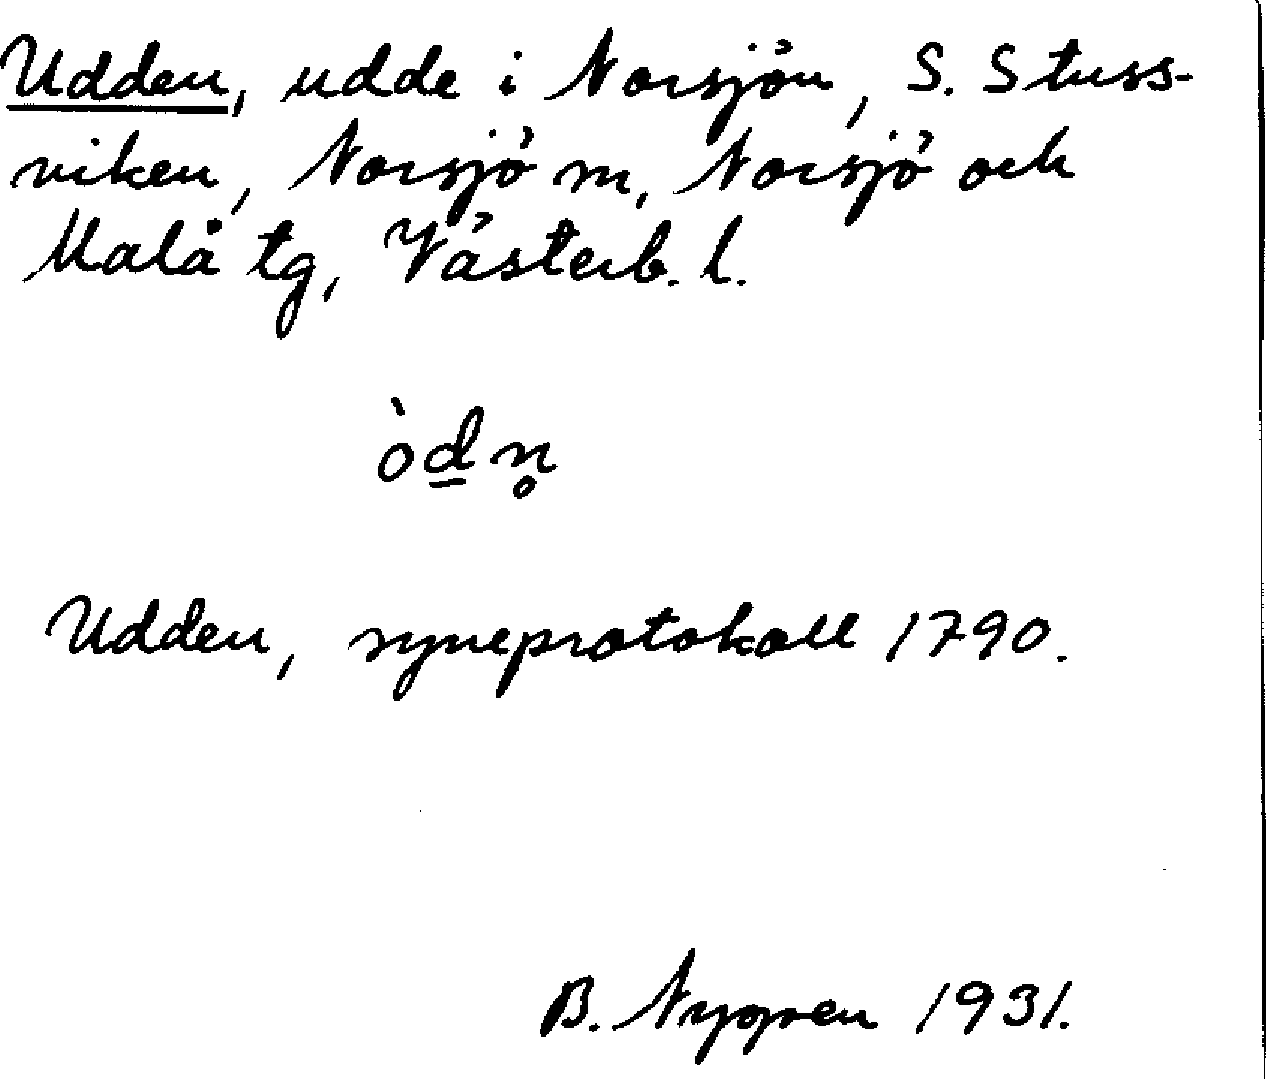 Udden, udde i Norsjön, S. Stuss-
viken, Norsjö m, Norsjö och
Malå tg, Västerb. l.
òd̲n̥
Udden, syneprotokoll 1790.
B. Nygren 1931.